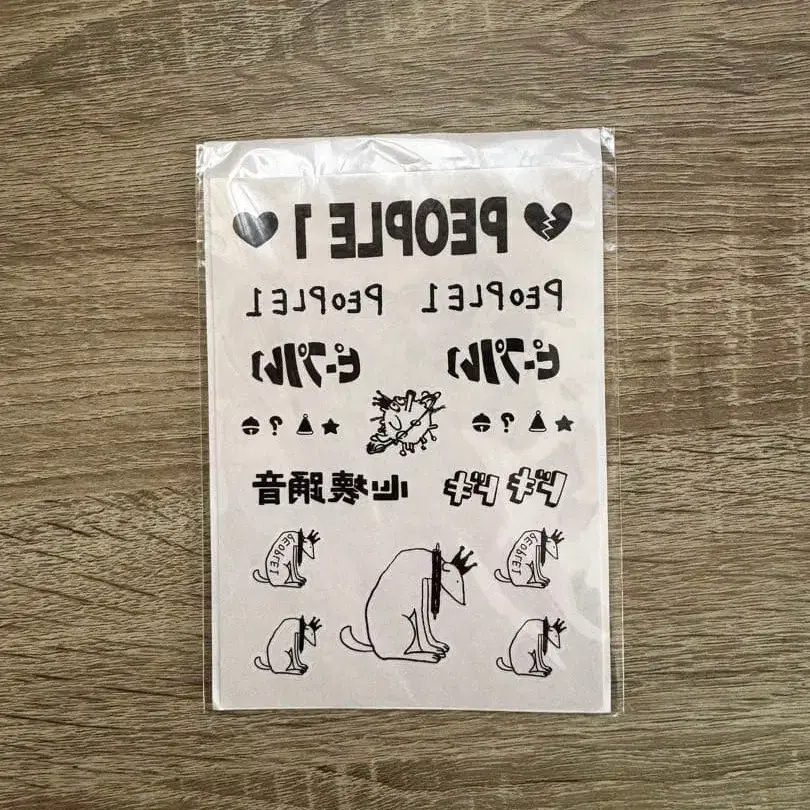 PEOPLE 1
PEOPLE1 PEOPLE1
ピープル1 ピープル1
? ?
ドキドキ 心壊踊音
PEOPLE1 PEOPLE1